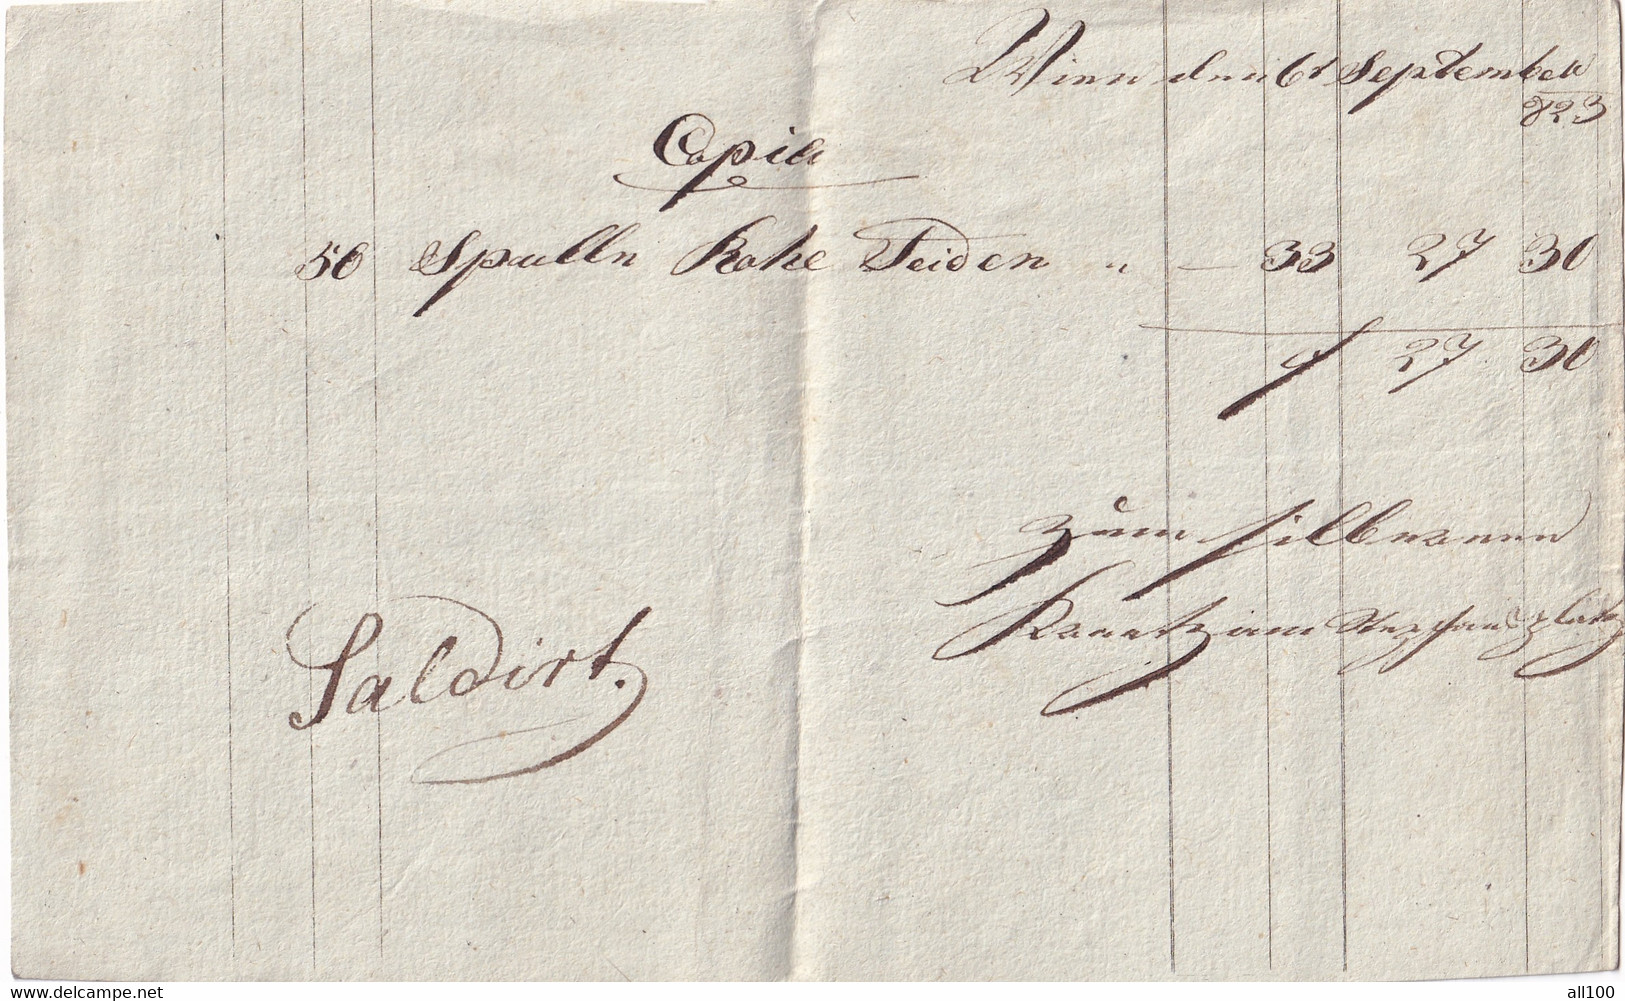 Wien den 6t September
823
Copia
50 Spulln Rohe Seiden " — 33 27 30
f 27 30
Zum
Saldirt.
am Stephansplatz
www.delcampe.net
all100